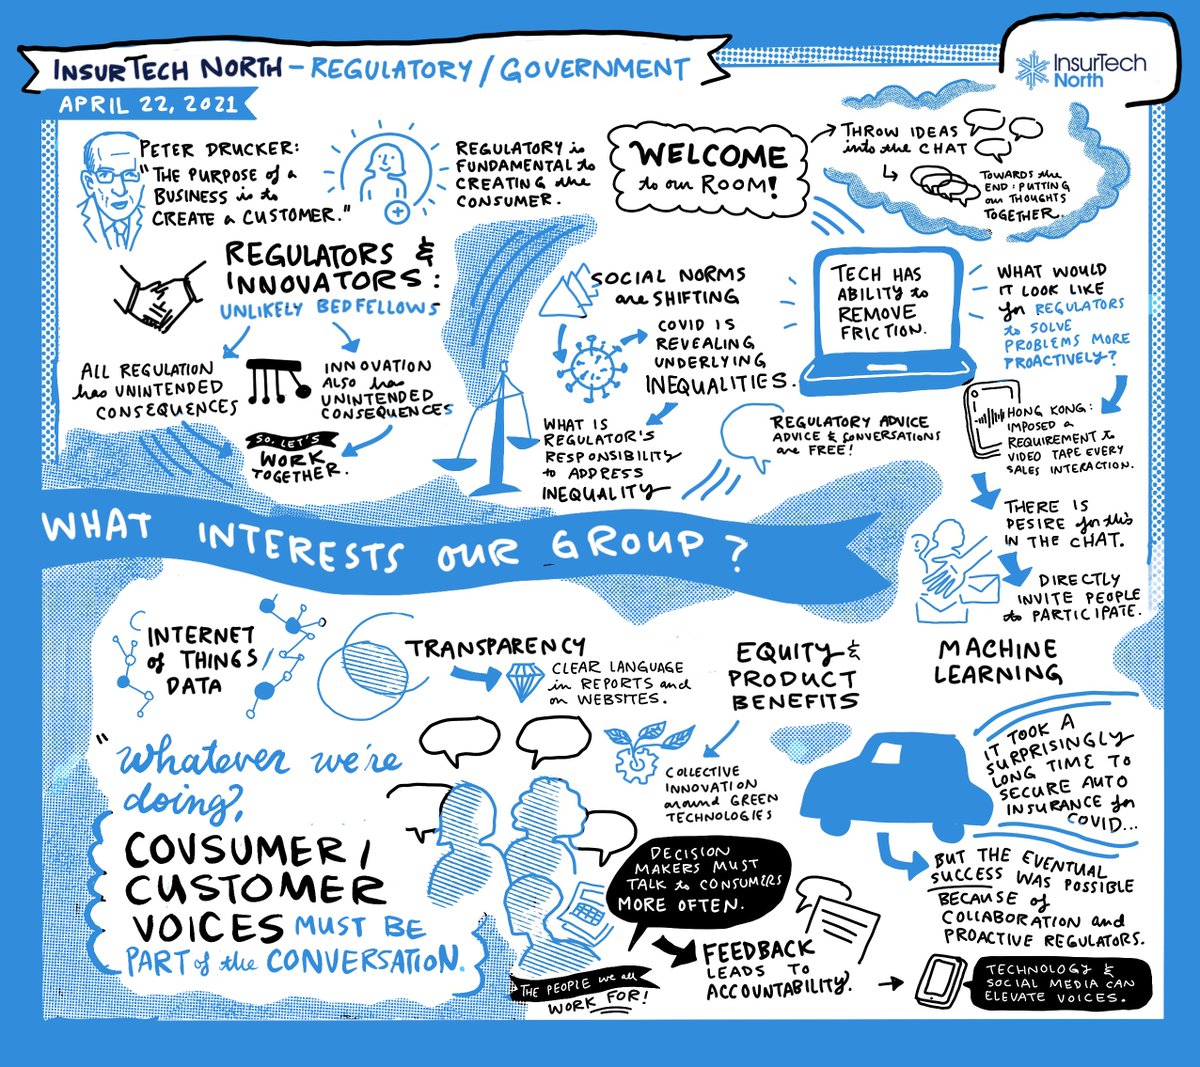 INSURTECH NORTH - REGULATORY / GOVERNMENT
APRIL 22, 2021
InsurTech
North
PETER DRUCKER:
"THE PURPOSE of a
BUSINESS is to
CREATE a CUSTOMER."
REGULATORY is
FUNDAMENTAL to
CREATING the
CONSUMER.
WELCOME
to our ROOM!
THROW IDEAS
into the CHAT
TOWARDS the
END: PUTTING
our THOUGHTS
TOGETHER.
REGULATORS &
INNOVATORS:
UNLIKELY BEDFELLOWS
ALL REGULATION
has UNINTENDED
CONSEQUENCES
INNOVATION
ALSO has
UNINTENDED
CONSEQUENCES
SO, LET'S
WORK
TOGETHER.
SOCIAL NORMS
are SHIFTING
COVID IS
REVEALING
UNDERLYING
INEQUALITIES.
WHAT IS
REGULATOR'S
RESPONSIBILITY
to ADDRESS
INEQUALITY
TECH HAS
ABILITY to
REMOVE
FRICTION.
REGULATORY ADVICE
ADVICE & CONVERSATIONS
are FREE!
WHAT WOULD
IT LOOK LIKE
for REGULATORS
to SOLVE
PROBLEMS MORE
PROACTIVELY?
HONG KONG:
IMPOSED a
REQUIREMENT to
VIDEO TAPE EVERY
SALES INTERACTION.
THERE IS
DESIRE for this
IN THE CHAT.
DIRECTLY
INVITE PEOPLE
to PARTICIPATE.
WHAT INTERESTS OUR GROUP?
INTERNET
of THINGS/
DATA
TRANSPARENCY
CLEAR LANGUAGE
in REPORTS and
on WEBSITES.
EQUITY &
PRODUCT
BENEFITS
COLLECTIVE
INNOVATION
around GREEN
TECHNOLOGIES
MACHINE
LEARNING
IT TOOK A
SURPRISINGLY
LONG TIME TO
SECURE AUTO
INSURANCE for
COVID...
BUT THE EVENTUAL
SUCCESS WAS POSSIBLE
BECAUSE of
COLLABORATION and
PROACTIVE REGULATORS.
"Whatever we're
doing,
CONSUMER /
CUSTOMER
VOICES MUST BE
PART of the CONVERSATION.
DECISION
MAKERS MUST
TALK to CONSUMERS
MORE OFTEN.
THE PEOPLE we all
WORK FOR!
FEEDBACK
LEADS TO
ACCOUNTABILITY.
TECHNOLOGY &
SOCIAL MEDIA CAN
ELEVATE VOICES.